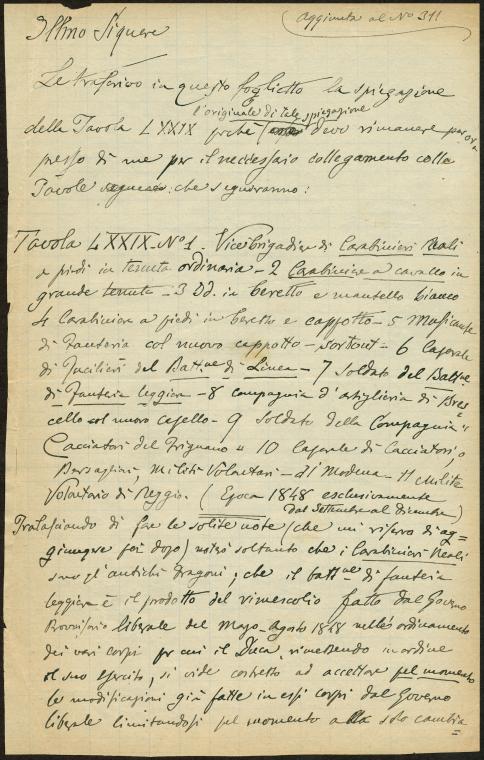 Aggiunta al Nº 311
Illmo Signore
Le trascrivo in questo foglietto la spiegazione
l'originale di tale spiegazione
della Tavola LXXIX perchè devo rimanere per ora
presso di me per il necessario collegamento colle
Tavole che seguiranno:
Tavola LXXIX. Nº 1. Vicebrigadiere di Carabinieri Reali
a piedi in tenuta ordinaria - 2 Carabiniere a cavallo in
grande tenuta - 3 Id. in beretto e mantello bianco
4 Carabiniere a piedi in beretto e cappotto - 5 Musicante
di Fanteria col nuovo cappotto - sortout - 6 Caporale
di Fucilieri del Battne di Linea - 7 Soldato del Battne
di Fanteria leggera - 8 compagnia d'artiglieria di Bres
cello col nuovo casello - 9 Soldato della Compagnia "
Cacciatori del Frignano " 10 Caporale di Cacciatori o
Bersaglieri, Militi Volontari - di Modena - 11 Milite
Volontario di Reggio. (Epoca 1848 esclusivamente
dal Settembre al Dicembre)
Tralasciando di fare le solite note (che mi riservo di ag-
giungere poi dopo) noterò soltanto che i Carabinieri Reali
sono gl'antichi Dragoni, che il battne di fanteria
leggera è il prodotto del rimescolio fatto dal Governo
Provvisorio liberale del Mazo - Agosto 1848 nell'ordinamento
dei vari corpi per cui il Duca, rimettendo in ordine
il suo esercito, si vide costretto ad accettare pel momento
le modificazioni già fatte in essi corpi dal Governo
liberale limitandosi pel momento a solo cambia
=